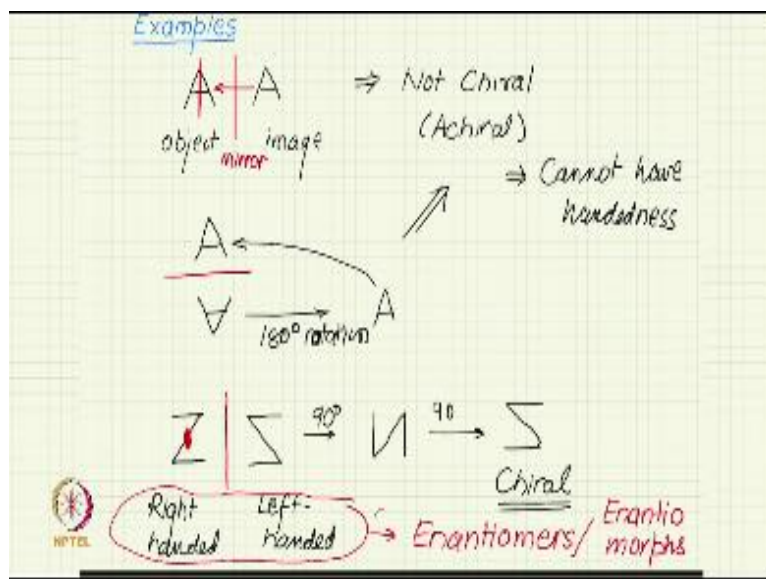 Examples
A A ⇒ Not Chiral
(Achiral)
object mirror image
⇒ Cannot have
handedness
A
∀ 180° rotation A
Z Σ 90° И 90 Σ
Chiral
Right handed
Left-handed
Enantiomers/ Enantio
morphs
NPTEL